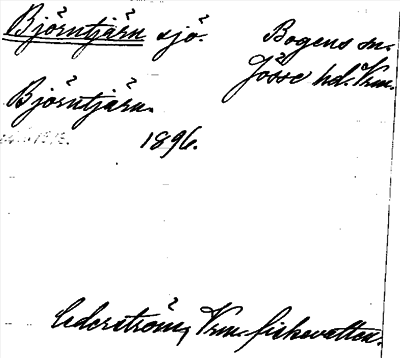 Björntjärn sjö. Bogens sn.
Jösse hd. Vrm.
Björntjärn.
1896.
Cederström, Vrm. fiskevatten.